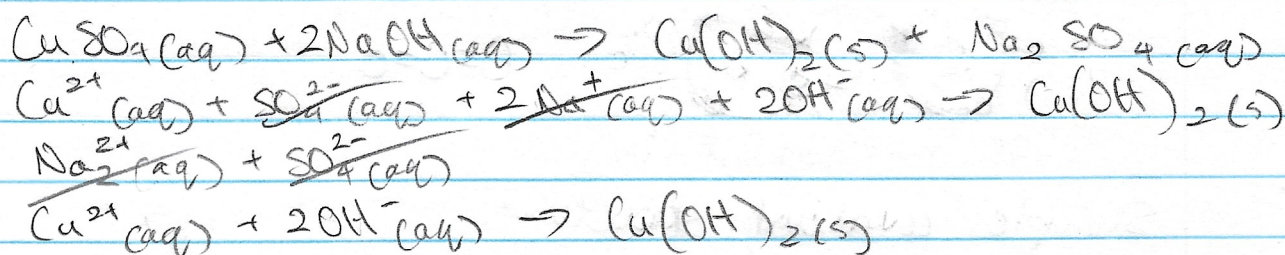 CuSO₄(aq) + 2NaOH(aq) → Cu(OH)₂(s) + Na₂SO₄(aq)
Cu²⁺(aq) + SO₄²⁻(aq) + 2Na⁺(aq) + 2OH⁻(aq) → Cu(OH)₂(s)
Na₂²⁺(aq) + SO₄²⁻(aq)
Cu²⁺(aq) + 2OH⁻(aq) → Cu(OH)₂(s)